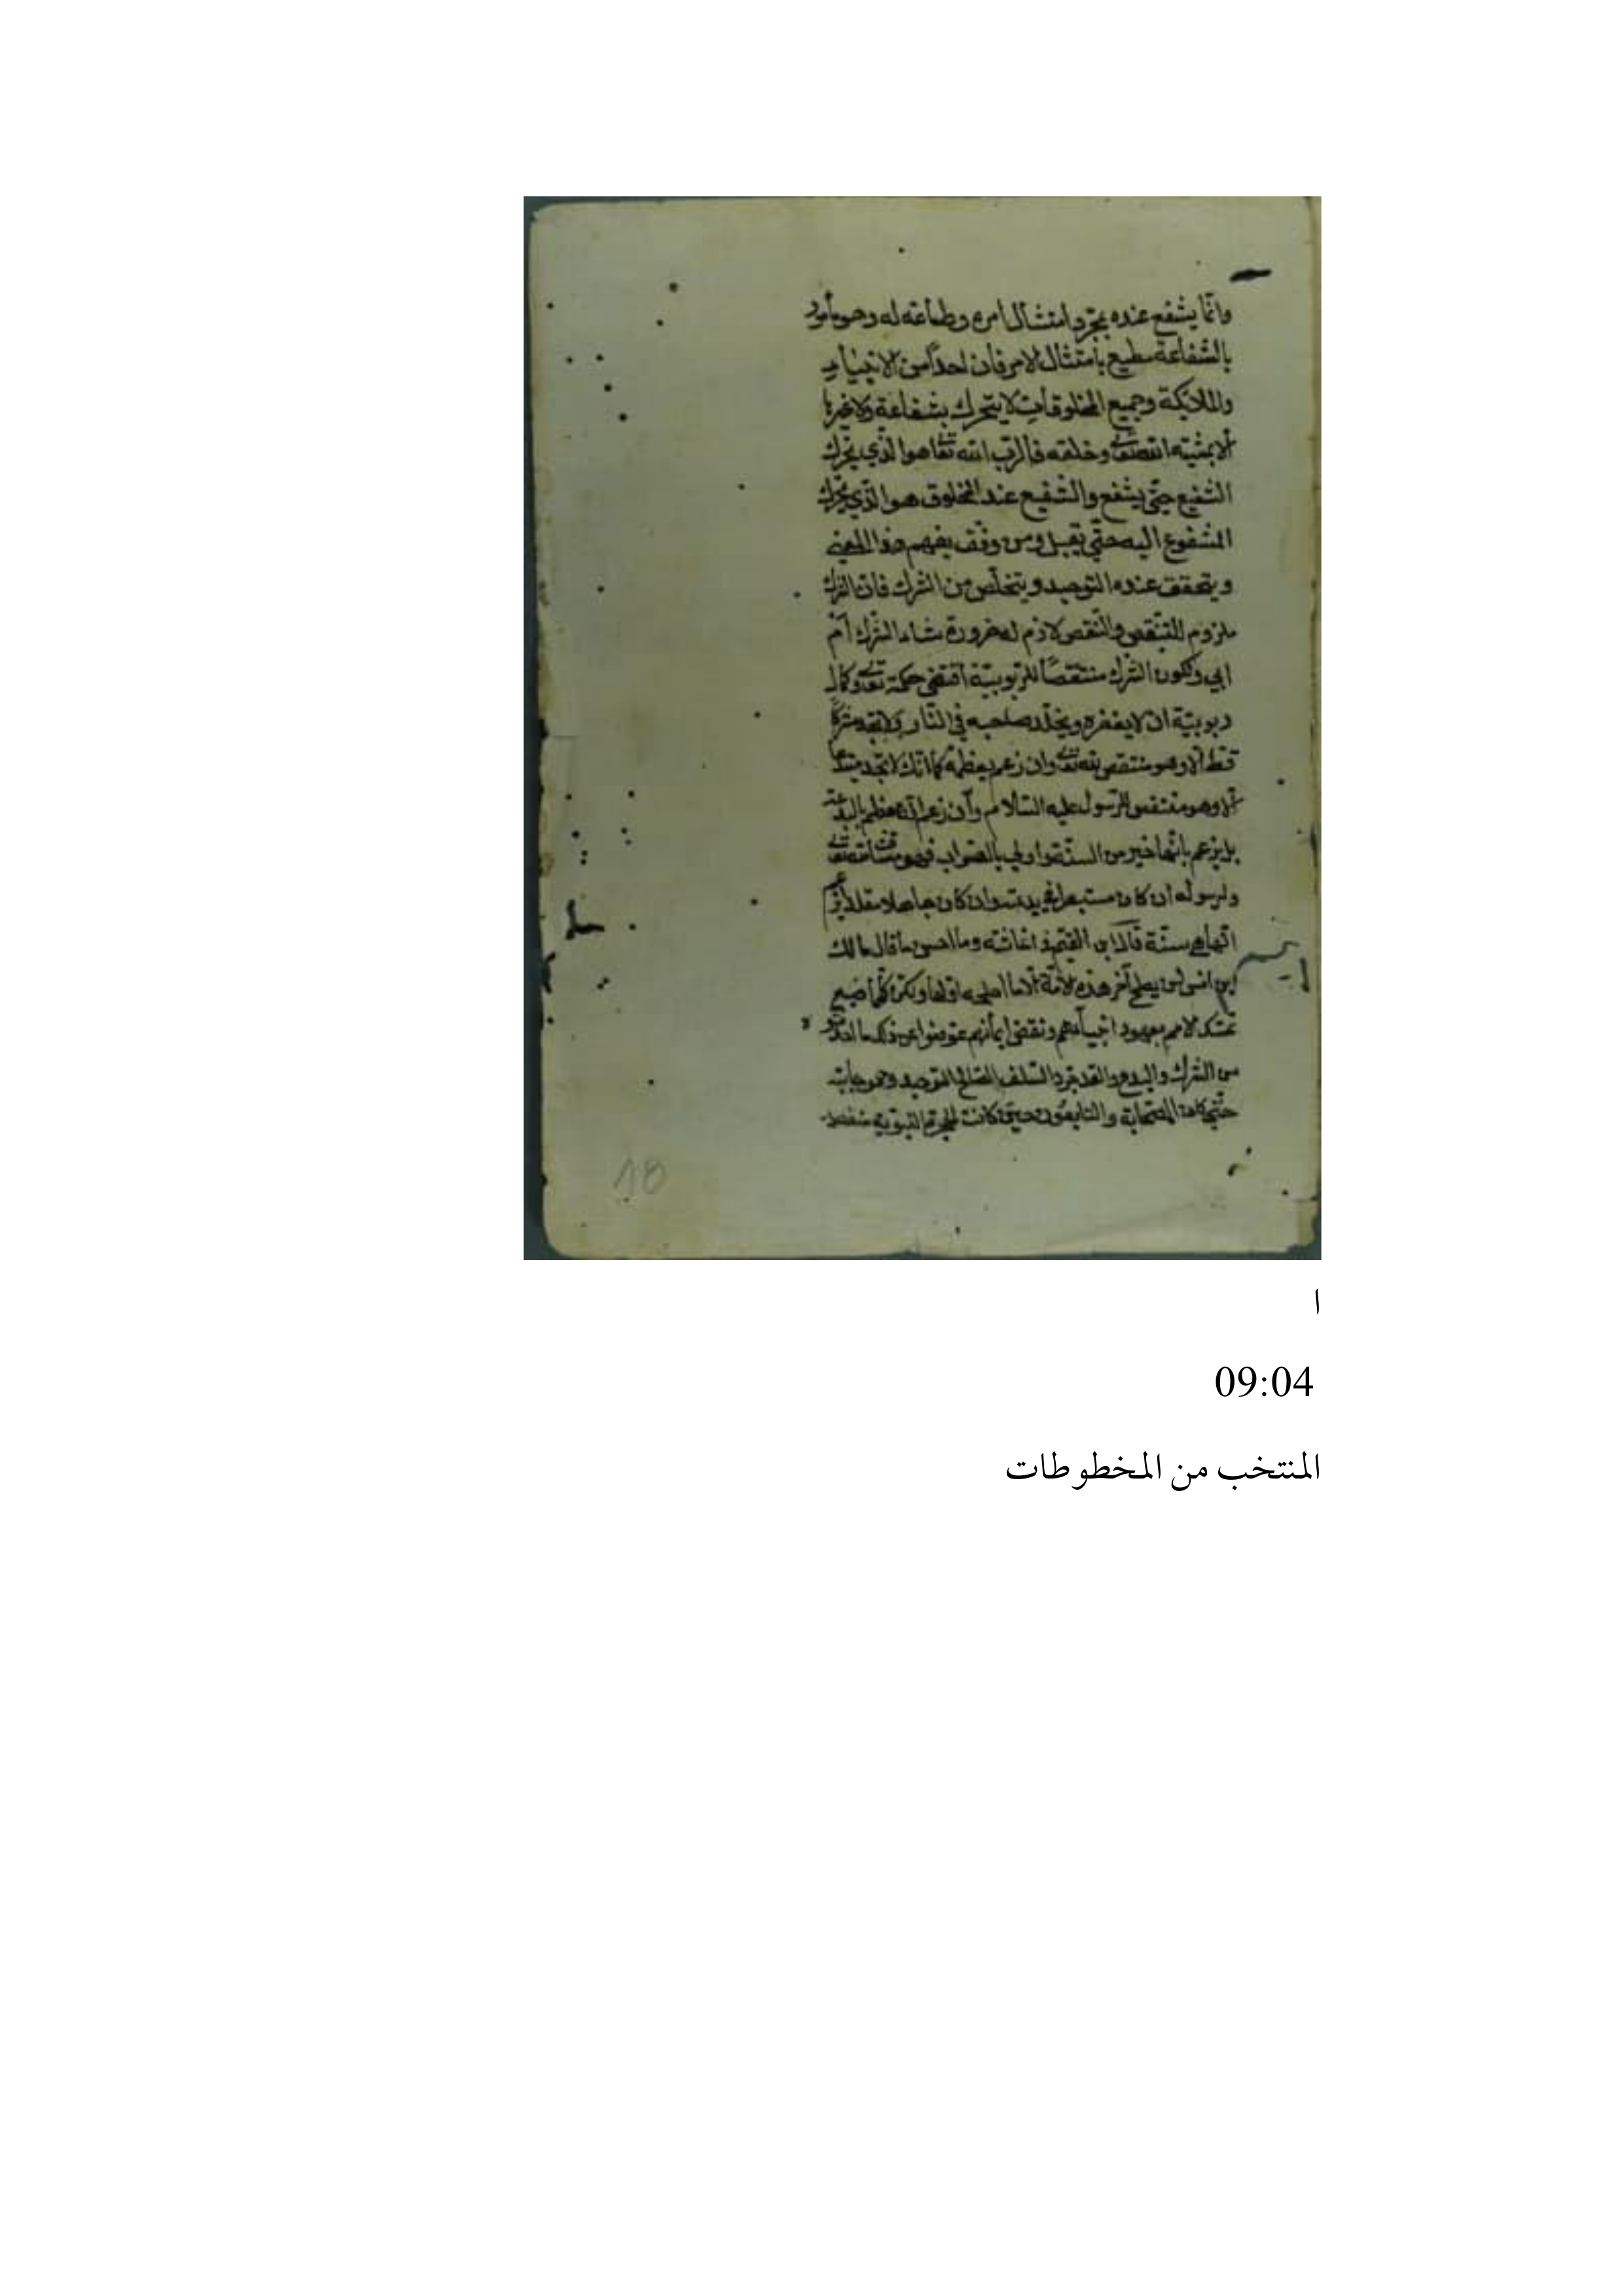 وانما يشفع عنده بمجرد امتثال امره وطاعته له وهو مأمور
بالشفاعة مطيع بامتثال الامر فان احدًا من الانبياء
والملائكة وجميع المخلوقات لا يتحرك بشفاعة ولا غيرها
الا بمشيته الله تعالى وخلقه فالرب الله تعا هو الذي يحرك
الشفيع حتى يشفع والشفيع عند المخلوق هو الذي يحرك
المشفوع اليه حتى يقبل ومن وفق بفهم هذا المعنى
ويتحقق عنده التوحيد ويتخلص من الشرك فان الشرك
ملزوم للتنقص والنقص لازم له ضرورة شاء المشرك أم
ابي ولكون الشرك منتقصًا للربوبية اقتضى حكمة تعالى وكمال
ربوبية ان لا يغفره ويخلد صاحبه في النار ولا تجد مشركًا
قط الا وهو منتقص لله تعالى وان زعم يعظمه كما انك لا تجد مبتدعا
الا وهو منتقص للرسول عليه السلام وان زعم انه معظم بالبدعة
بل يزعم بانها خير من السنة واولي بالصواب فهو مشاق لله تعالى
ولرسوله ان كان مستبصرا في بدعته وان كان جاهلا مقلدا يزعم
انها هي سنة قال ابن القيم في اغاثته وما احسن ما قال مالك
ابن انس لن يصلح آخر هذه الامة الا ما اصلحه اولها ولكن كلما ضعف
تمسك الامم بعهود انبيائهم ونقص ايمانهم عوضوا عن ذلك ما احدثوه
من الشرك والبدع ولقد جرد السلف الصالح التوحيد وحموا جانبه
حتى كان الصحابة والتابعون حين كانت الحجرة النبوية منفصلة
18
ا
09:04
المنتخب من المخطوطات